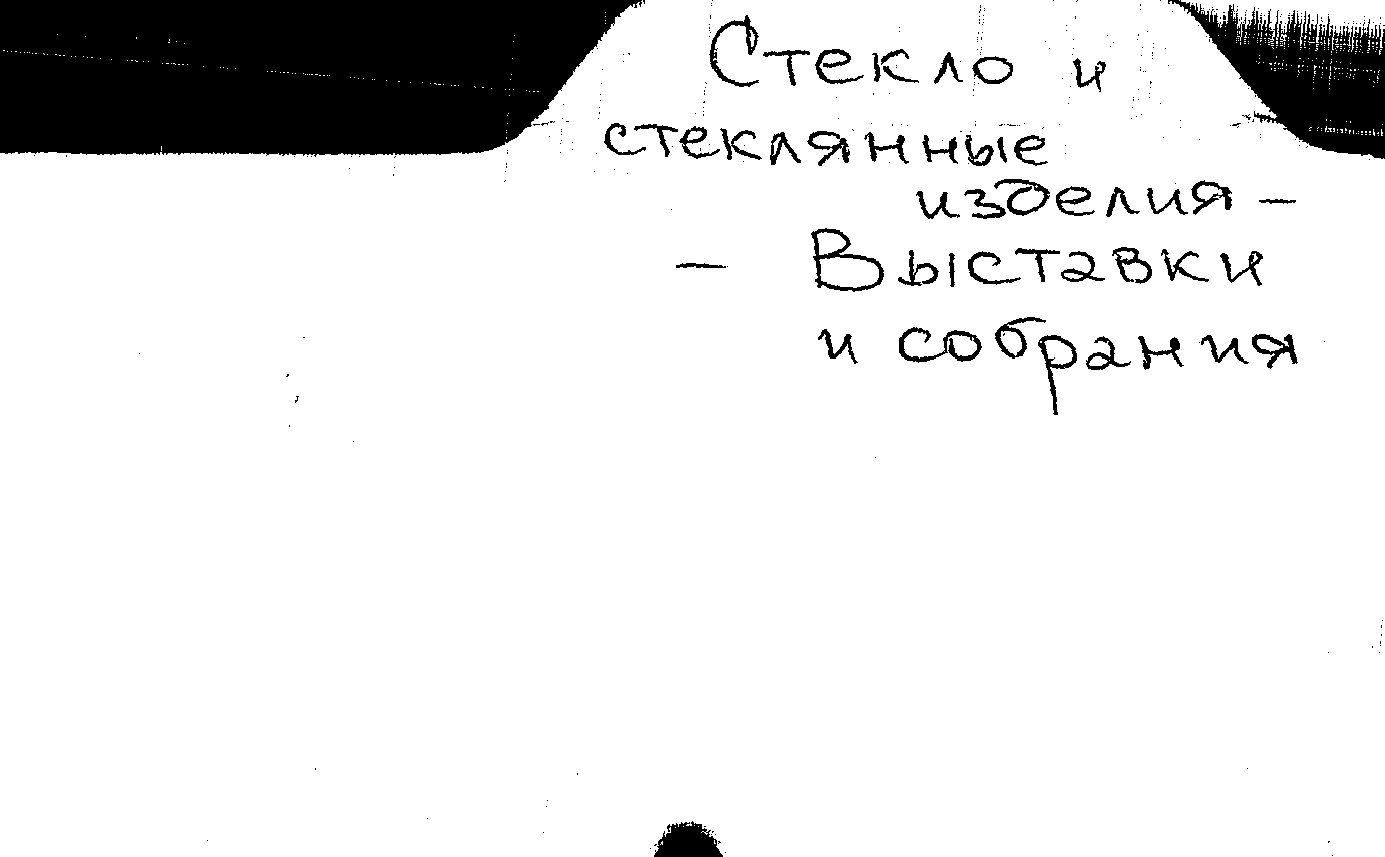 Стекло и
стеклянные
изделия -
- Выставки
и собрания